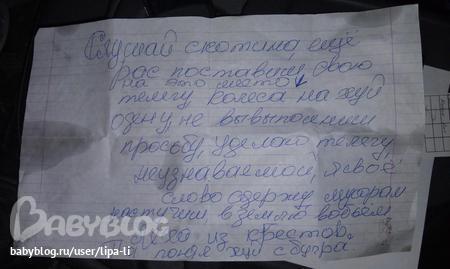 Слушай скотина ещё
рас поставиш свою
на это место
телегу колеса на хуй
одену, не вывыполниш
просьбу, уделаю телегу,
неузнаваемой, я своё
слово сдержу мусорам
настучиш, в землю вобьем
из крестов.
BABYBLOG
babyblog.ru/user/lipa-li